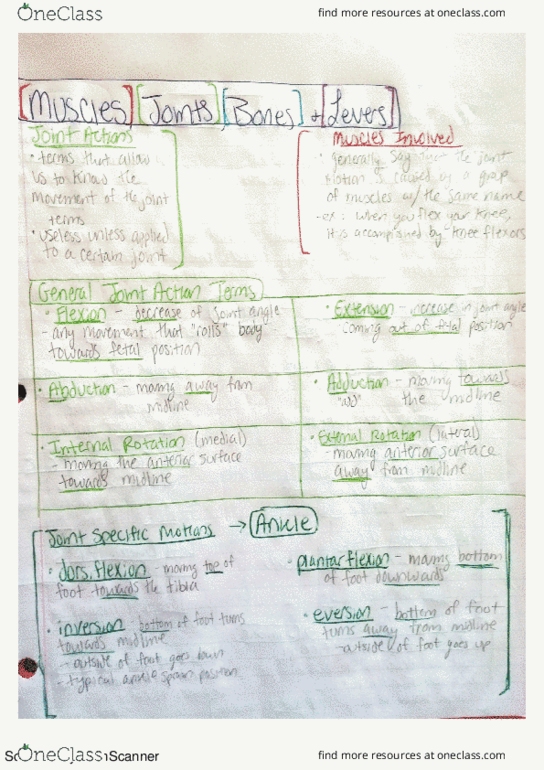 OneClass
find more resources at oneclass.com
[Muscles] [Joints] [Bones] + [Levers]
Joint Actions
• terms that allow
us to know the
movement of the joint
terms
• useless unless applied
to a certain joint
Muscles Involved
• generally say that the joint
motion is caused by a group
of muscles w/ the same name
- ex: when you flex your knee,
it is accomplished by "knee flexors
General Joint Action Terms
• Flexion - decrease of joint angle
- any movement that "rolls" body
towards fetal position
• Extension - increase in joint angle
coming out of fetal position
• Abduction - moving away from
midline
• Adduction - moving towards
"add" the midline
• Internal Rotation (medial)
- moving the anterior surface
towards midline
• External Rotation (lateral)
- moving anterior surface
away from midline
Joint Specific Motions → Ankle
• dorsiflexion - moving top of
foot towards the tibia
• plantarflexion - moving bottom
of foot downwards
• inversion - bottom of foot turns
towards midline
- outside of foot goes down
- typical ankle sprain position
• eversion - bottom of foot
turns away from midline
outside of foot goes up
OneClass
Scanner
find more resources at oneclass.com